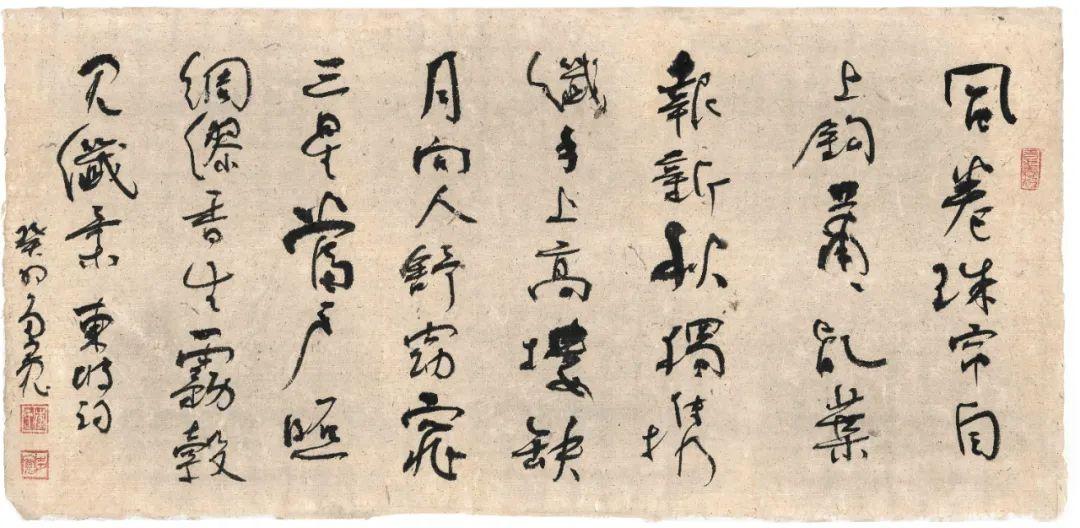 風卷珠帘自
上鉤蕭〻乱葉
報新秋獨携
纖手上高樓缺
月向人舒窈窕
三星當户照
綢繆香生霧縠
見纖柔 東坡詞
癸卯